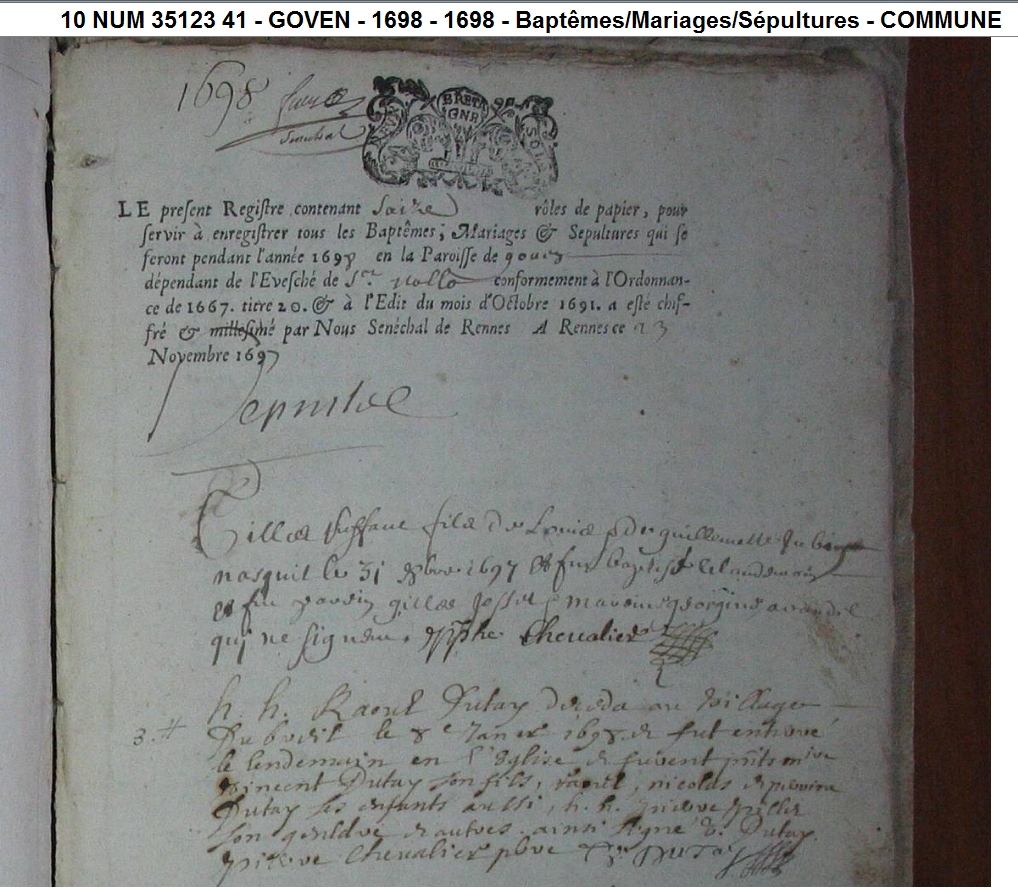 10 NUM 35123 41 - GOVEN - 1698 - 1698 - Baptêmes/Mariages/Sépultures - COMMUNE
1698
Senechal
BRETA
GNE
LE present Registre contenant Saize rôles de papier, pour
servir à enregistrer tous les Baptêmes, Mariages & Sepultures qui se
feront pendant l'année 1698 en la Paroisse de goven
dépendant de l'Evesché de St mallo conformement à l'Ordonnan-
ce de 1667. titre 20. & à l'Edit du mois d'Octobre 1691. a esté chif-
fré & millesimé par Nous Senéchal de Rennes A Rennes ce 23
Novembre 1697
Gilles fils de Louis & de guillemette
nasquit le 31 xbre 1697 & fut baptisé le landemain
& fut parain gilles Josset & maraine georgine
qui ne signent. Chevalier
h. h. Raoul Dutay deceda au village
3. Du le 8e Janer 1698 & fut enterré
le lendemain en l'Eglise & furent pnts mre
vincent Dutay son fils, raoul, nicolas & perrine
Dutay ses enfants aussi, h. h. pierre
son gendre & autres ainsi signé V. Dutay
pierre Chevalier pbre V. DUTAY